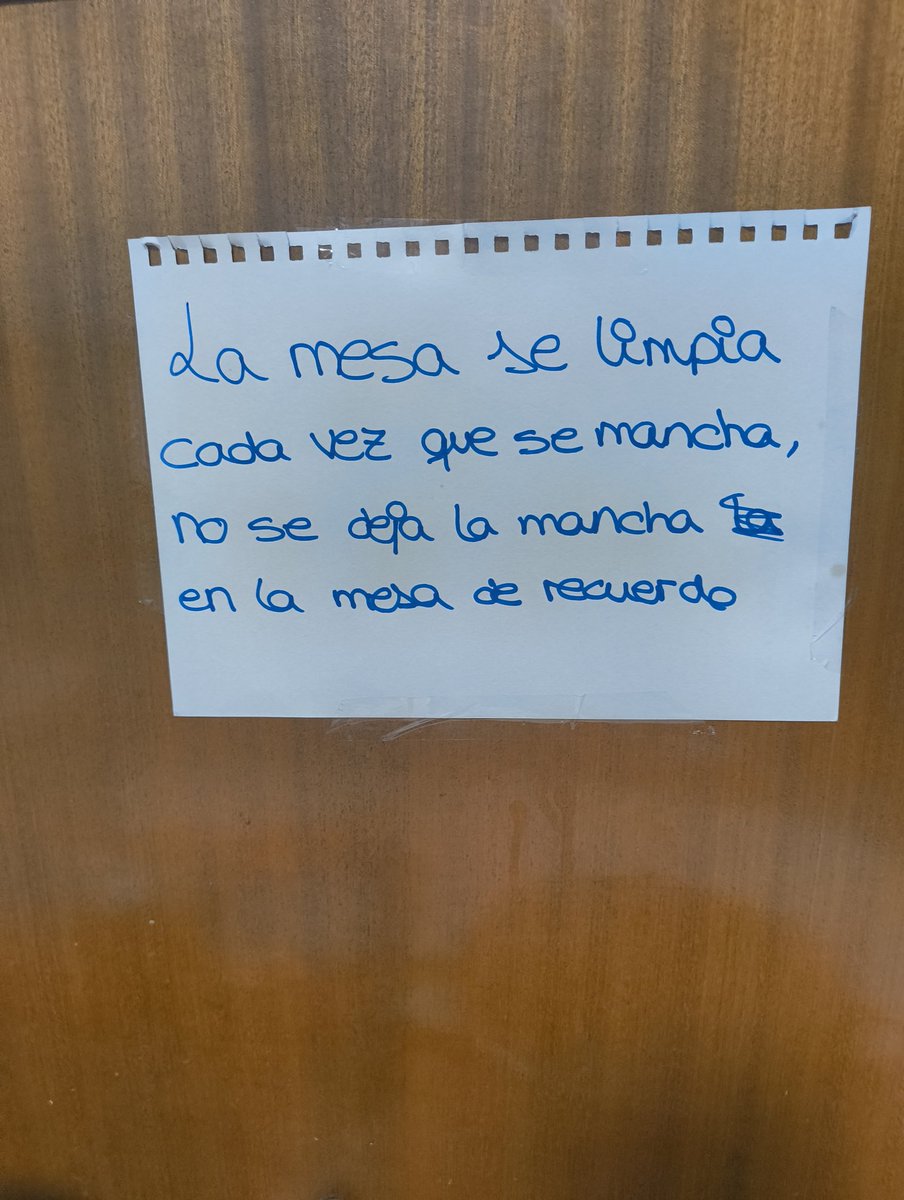 La mesa se limpia
cada vez que se mancha,
no se deja la mancha
en la mesa de recuerdo